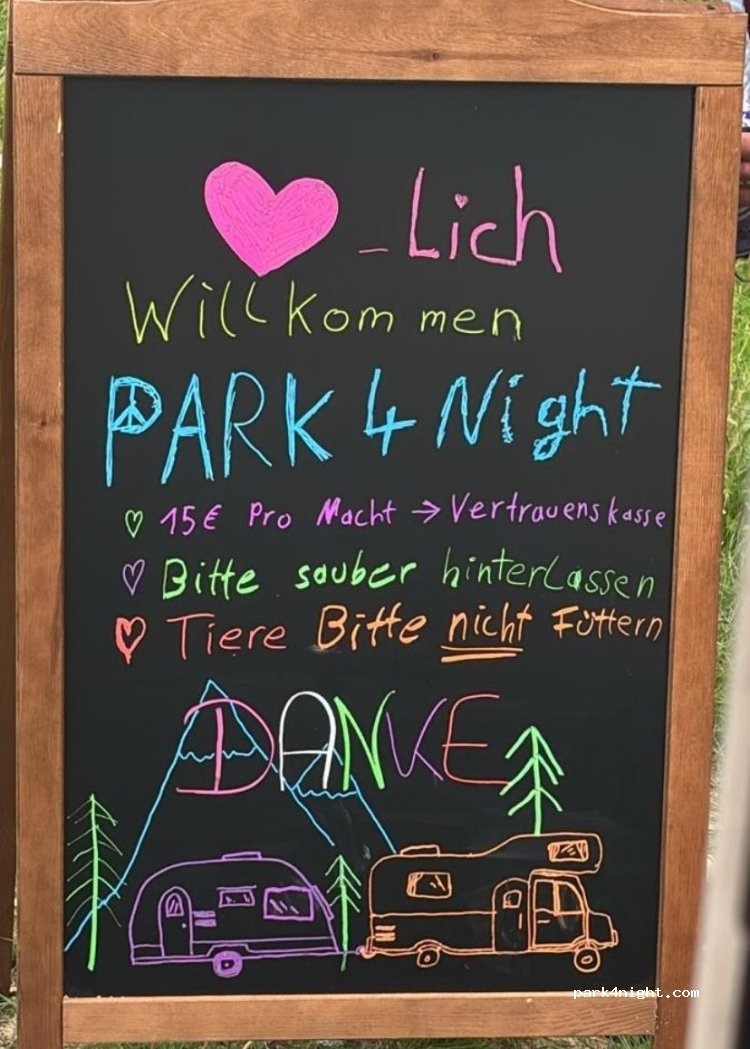 _Lich
Willkommen
PARK 4 Night
15€ Pro Nacht → Vertrauenskasse
Bitte sauber hinterlassen
Tiere Bitte nicht Füttern
DANKE
park4night.com